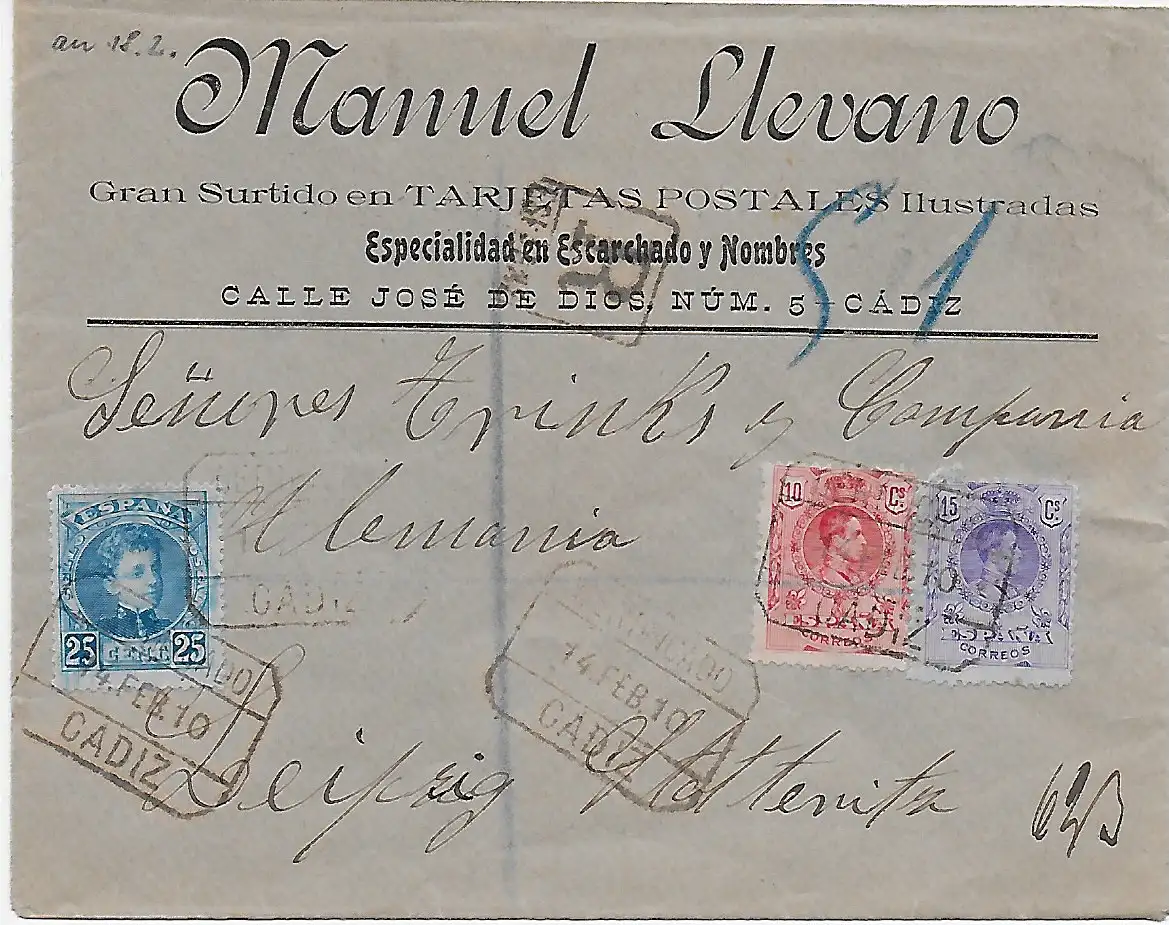 an 18.2.
Manuel Llevano
Gran Surtido en TARJETAS POSTALES Ilustradas
Especialidad en Escarchado y Nombres
CALLE JOSÉ DE DIOS, NÚM. 5 - CÁDIZ
51
R
Señores Trinks y Compania
Alemania
ESPAÑA
25 25
10 Cs.
CORREOS
15 Cs.
CORREOS
CADIZ
14.FEB.10
CADIZ
14.FEB.10
CADIZ
CADIZ
Leipzig